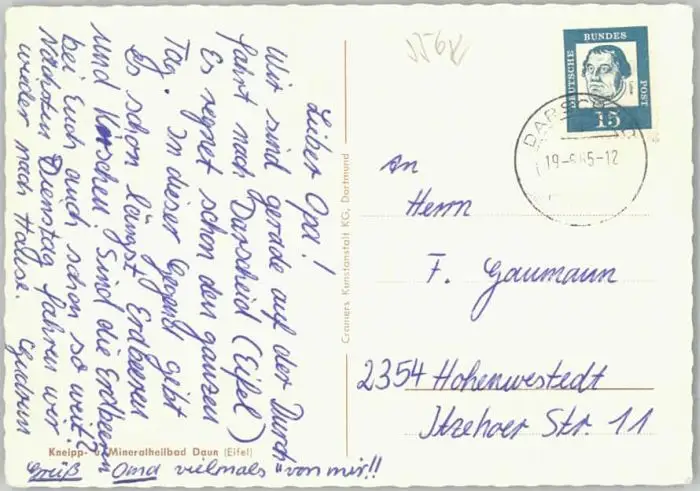 Lieber Opa!
Wir sind gerade auf der Durch
fahrt nach Darscheid (Eifel)
Es regnet schon den ganzen
Tag. In dieser Gegend gibt
Es schon längst Erdbeeren
und Kirschen. Sind die Erdbeeren
bei Euch auch schon so weit?
Nächsten Dienstag fahren wir
wieder nach Hause. Gudrun
Kneipp- u. Mineralheilbad Daun (Eifel)
Grüß Oma vielmals "von mir!!
Cramers Kunstanstalt KG, Dortmund
DEUTSCHE
BUNDES
POST
Luther
15
19-6.65-12
An
Herrn
F. Gaumann
2354 Hohenwestedt
Itzehoer Str. 11